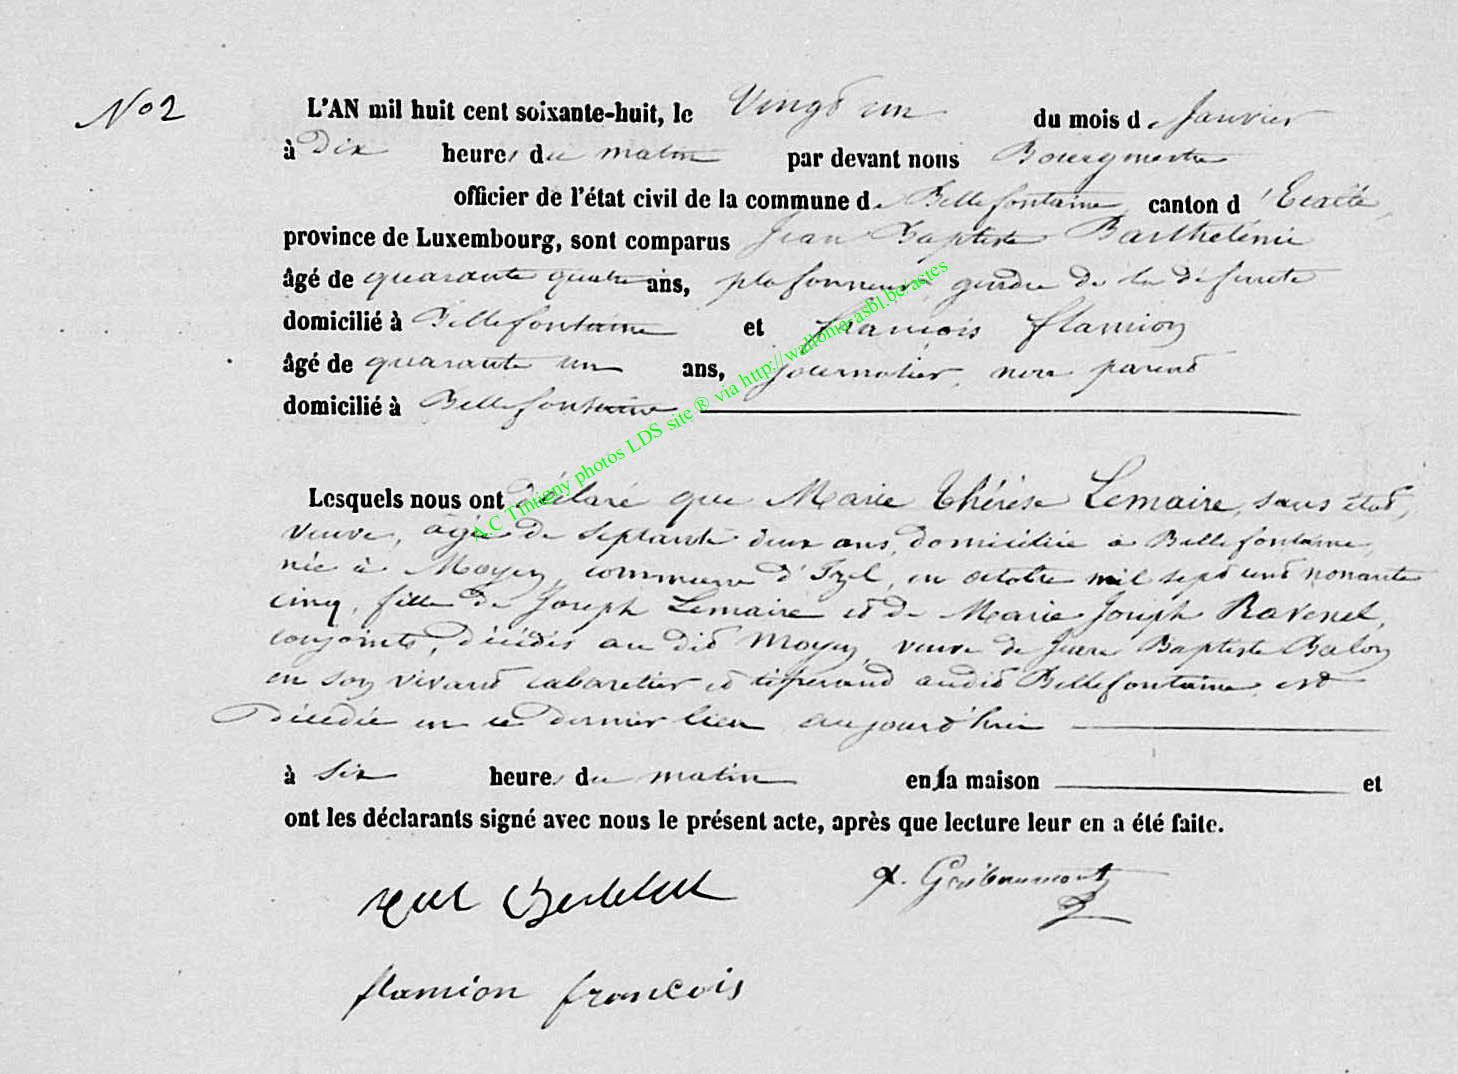 No 2
L'AN mil huit cent soixante-huit, le Vingt un du mois de Janvier
à Dix heures du matin par devant nous Bourgmestre
officier de l'état civil de la commune de Bellefontaine, canton d'Etalle,
province de Luxembourg, sont comparus Jean Baptiste Barthelémi
âgé de quarante quatre ans, plafonneur, gendre de la défunte
domicilié à Bellefontaine et françois flamion
âgé de quarante un ans, journalier, non parent
domicilié à Bellefontaine
Lesquels nous ont déclaré que Marie Thérèse Lemaire, sans état,
veuve, âgée de septante deux ans, domiciliée à Bellefontaine,
née à Moyen, commune d'Izel, en octobre mil sept cent nonante
cinq, fille de Joseph Lemaire et de Marie Joseph Ravenel,
conjoints, décédés au dit Moyen, veuve de Jean Baptiste Balon
en son vivant cabaretier et tisserand audit Bellefontaine, est
décédée en ce dernier lieu aujourd'hui
à six heures du matin en sa maison et
ont les déclarants signé avec nous le présent acte, après que lecture leur en a été faite.
flamion françois
A.C Tintigny photos LDS site ® via http://wallonia-asbl.be/actes